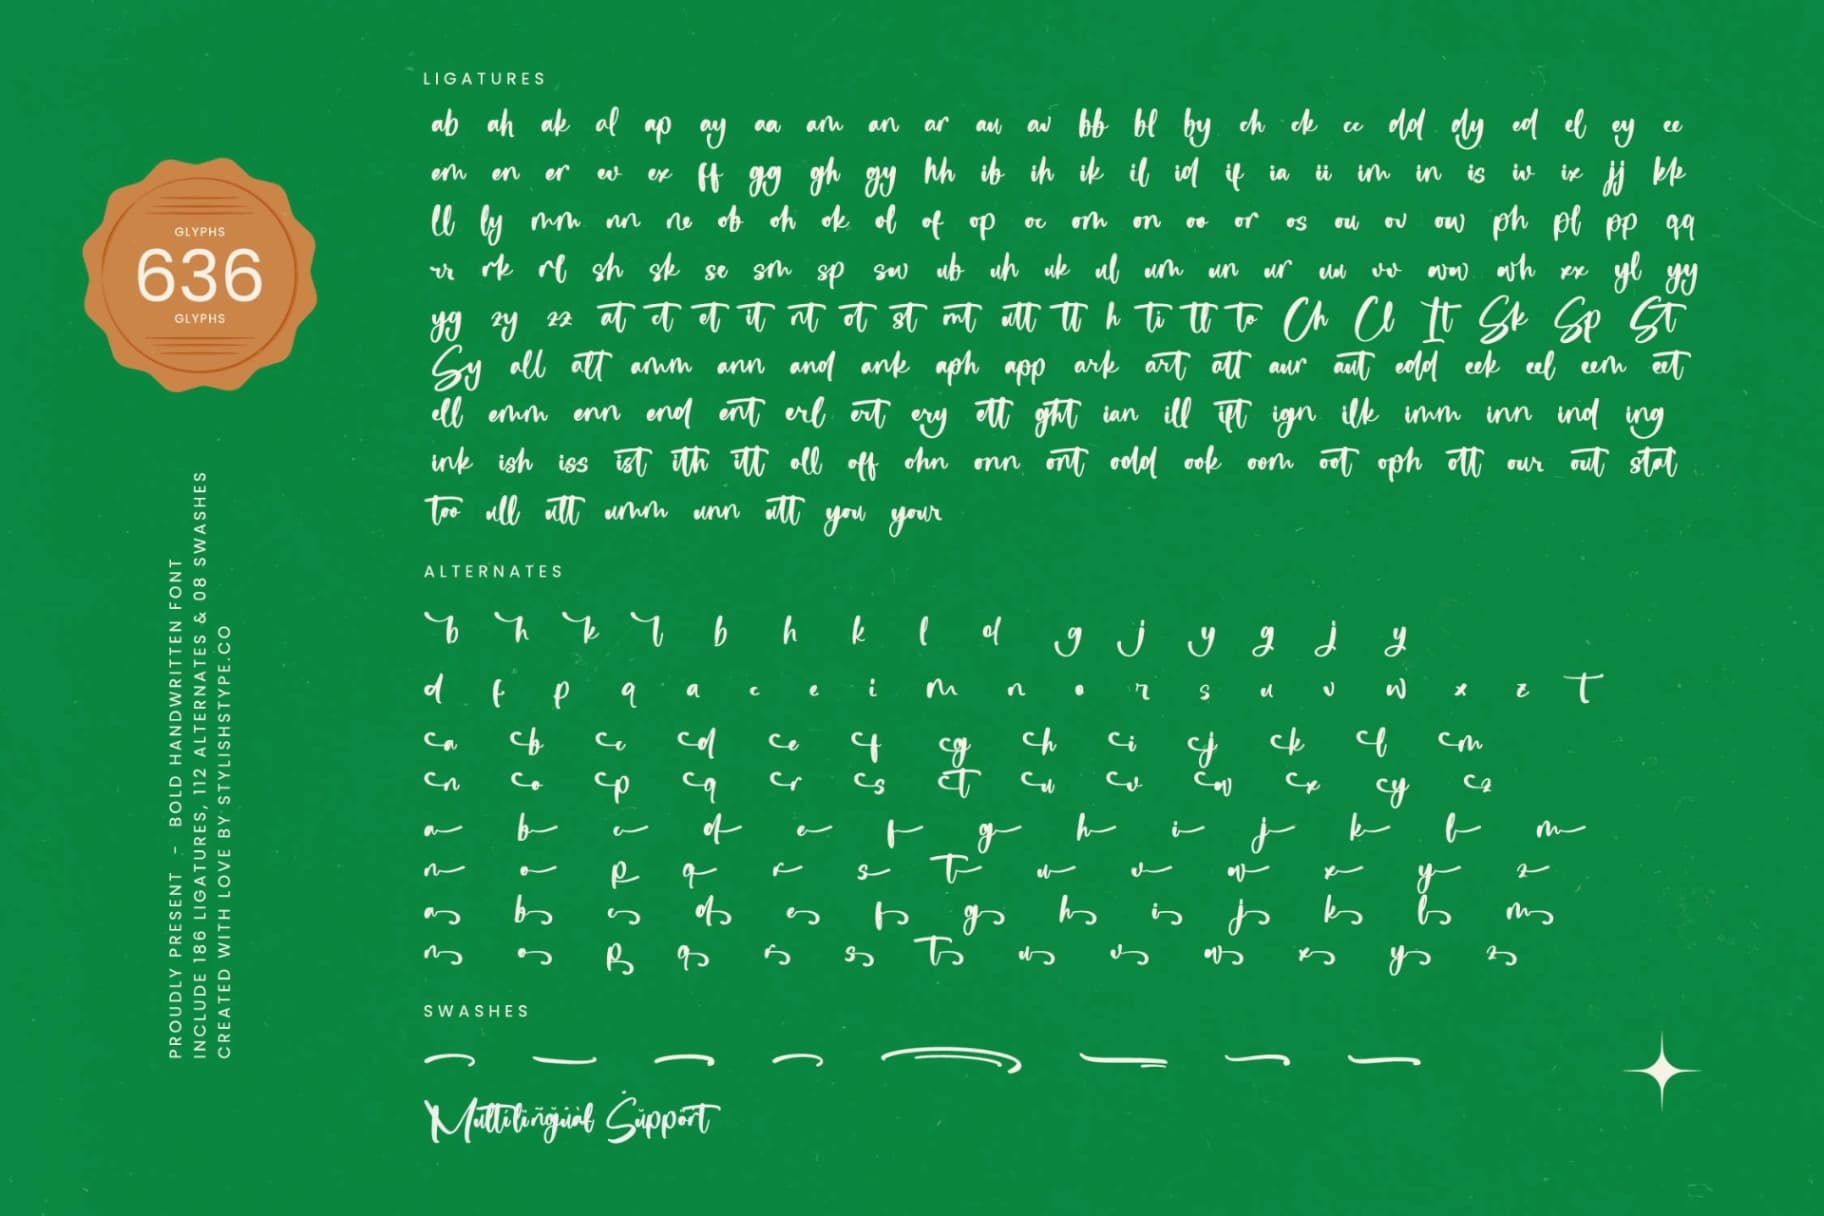 LIGATURES
ab ah ak al ap ay aa am an ar au aw bb bl by ch ck cc dd dy ed el ey ee
em en er ev ex ff gg gh gy hh ib ih ik il id if ia ii im in is iv ix jj kk
ll ly mm nn ne ob oh ok ol of op oc om on oo or os ou ov ow ph pl pp qq
rr rk rl sh sk se sm sp sw ub uh uk ul um un ur uu vv ww wh xx yl yy
yg zy zz at ct et it nt ot st mt utt tt h ti tt to Ch Cl It Sk Sp St
Sy all att amm ann and ank aph app ark art att aur aut edd eek eel eem eet
ell emm enn end ent erl ert ery ett ght ian ill ift ign ilk imm inn ind ing
ink ish iss ist ith itt oll off ohn onn ont odd ook oom oot oph ott our out stat
too ull utt umm unn utt you your
GLYPHS
636
GLYPHS
PROUDLY PRESENT - BOLD HANDWRITTEN FONT
INCLUDE 186 LIGATURES, 112 ALTERNATES & 08 SWASHES
CREATED WITH LOVE BY STYLISHSTYPE.CO
ALTERNATES
b h k l b h k l d g j y g j y
d f p q a c e i m n o r s u v w x z t
ca cb cc cd ce cf cg ch ci cj ck cl cm
cn co cp cq cr cs ct cu cv cw cx cy cz
a b c d e f g h i j k l m
n o p q r s t u v w x y z
a b c d e f g h i j k l m
n o p q r s t u v w x y z
SWASHES
Multilingual Support